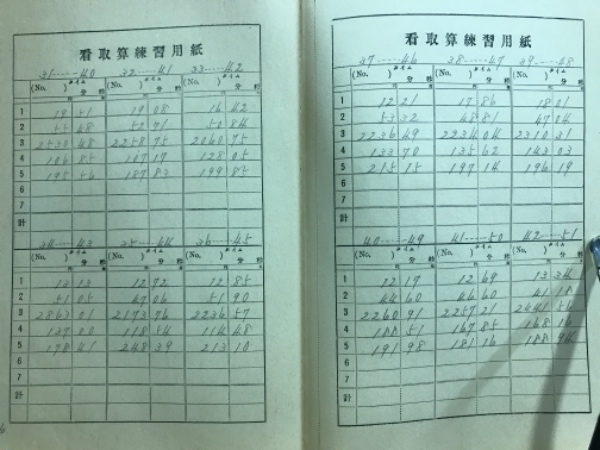 看取算練習用紙
31……40 32……41 33……42
(No. )タイム 分 秒 (No. )タイム 分 秒 (No. )タイム 分 秒
1 19 51 19 08 16 42
2 48 52 71 50 84
3 2530 48 2258 75 2060 75
4 106 85 107 17 128 05
5 195 56 187 83 199 83
6
7
計
34……43 35……44 36……45
(No. )タイム 分 秒 (No. )タイム 分 秒 (No. )タイム 分 秒
1 13 13 12 72 12 85
2 51 05 47 06 51 90
3 2863 01 2173 76 2236 57
4 137 00 118 54 114 48
5 178 41 248 39 213 10
6
7
計
看取算練習用紙
37……46 38……47 39……48
(No. )タイム 分 秒 (No. )タイム 分 秒 (No. )タイム 分 秒
1 12 21 17 86 18 01
2 53 32 48 81 47 04
3 2236 49 2234 04 2310 31
4 133 70 135 62 143 03
5 215 15 197 14 196 19
6
7
計
40……49 41……50 42……51
(No. )タイム 分 秒 (No. )タイム 分 秒 (No. )タイム 分 秒
1 12 17 12 69 13 34
2 44 60 46 60 41 18
3 2260 91 2257 21 2441
4 188 51 167 85 168 16
5 191 98 181 16 188 94
6
7
計